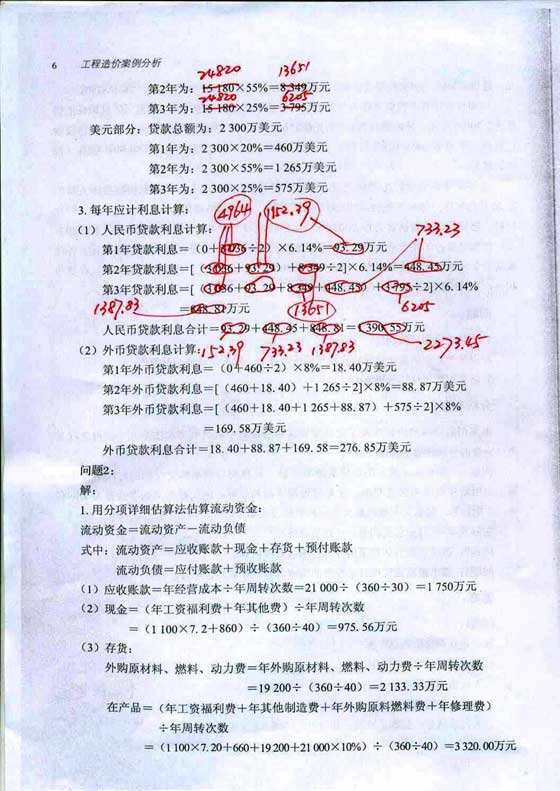 6 工程造价案例分析
24820 13651
第2年为：15 180×55%＝8 349万元
24820 6205
第3年为：15 180×25%＝3 795万元
美元部分：贷款总额为：2 300万美元
第1年为：2 300×20%＝460万美元
第2年为：2 300×55%＝1 265万美元
第3年为：2 300×25%＝575万美元
3. 每年应计利息计算：
4964 152.39
（1）人民币贷款利息计算：
733.23
第1年贷款利息＝（0＋3 036÷2）×6.14%＝93.29万元
第2年贷款利息＝[（3 036＋93.29）＋8 349÷2]×6.14%＝448.45万元
第3年贷款利息＝[（3 036＋93.29＋8 349＋448.45）＋3 795÷2]×6.14%
1387.83 ＝848.81万元 13651 6205
人民币贷款利息合计＝93.29＋448.45＋848.81＝1 390.55万元
（2）外币贷款利息计算：152.39 733.23 1387.83 2273.45
第1年外币贷款利息＝（0＋460÷2）×8%＝18.40万美元
第2年外币贷款利息＝[（460＋18.40）＋1 265÷2]×8%＝88.87万美元
第3年外币贷款利息＝[（460＋18.40＋1 265＋88.87）＋575÷2]×8%
＝169.58万美元
外币贷款利息合计＝18.40＋88.87＋169.58＝276.85万美元
问题2：
解：
1. 用分项详细估算法估算流动资金：
流动资金＝流动资产－流动负债
式中：流动资产＝应收账款＋现金＋存货＋预付账款
流动负债＝应付账款＋预收账款
（1）应收账款＝年经营成本÷年周转次数＝21 000÷（360÷30）＝1 750万元
（2）现金＝（年工资福利费＋年其他费）÷年周转次数
＝（1 100×7.2＋860）÷（360÷40）＝975.56万元
（3）存货：
外购原材料、燃料、动力费＝年外购原材料、燃料、动力费÷年周转次数
＝19 200÷（360÷40）＝2 133.33万元
在产品＝（年工资福利费＋年其他制造费＋年外购原料燃料费＋年修理费）
÷年周转次数
＝（1 100×7.20＋660＋19 200＋21 000×10%）÷（360÷40）＝3 320.00万元